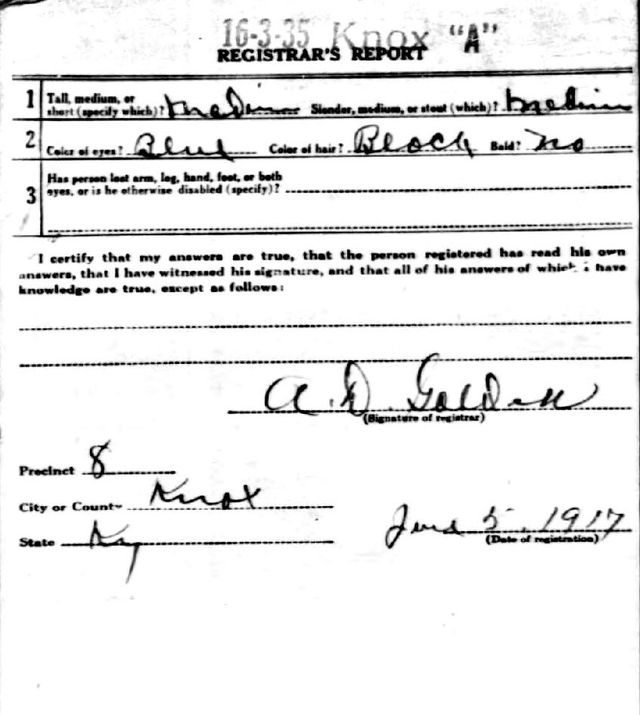 16-3-35 Knox "A"
REGISTRAR'S REPORT
1 Tall, medium, or short (specify which)? Medium Slender, medium, or stout (which)? Medium
2 Color of eyes? Blue Color of hair? Black Bald? No
3 Has person lost arm, leg, hand, foot, or both
eyes, or is he otherwise disabled (specify)?
I certify that my answers are true, that the person registered has read his own
answers, that I have witnessed his signature, and that all of his answers of which I have
knowledge are true, except as follows:
A. D. Golden
(Signature of registrar)
Precinct 8
City or County Knox
State Ky
June 5, 1917
(Date of registration)